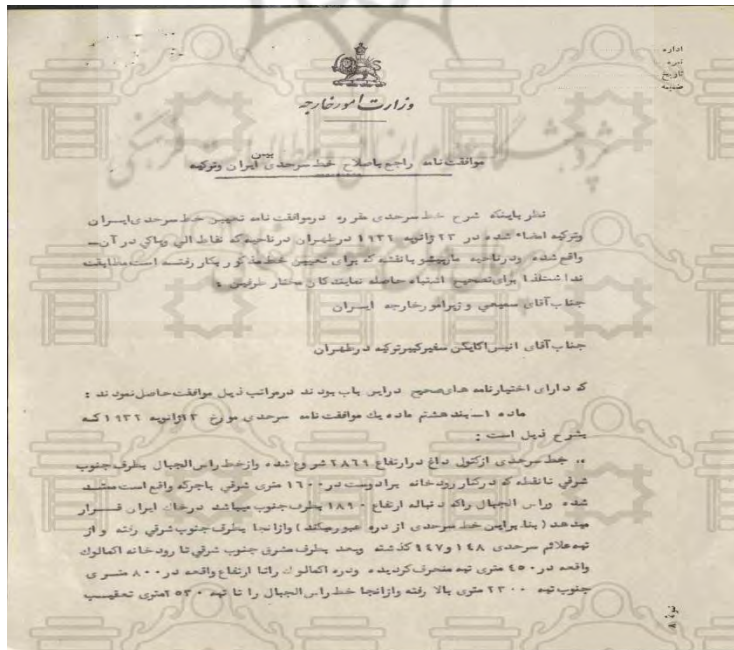 اداره
نمره
تاریخ
ضمیمه
وزارت امور خارجه
موافقت نامه راجع باصلاح خط سرحدی بین ایران وترکیه
نظر باینکه شرح خط سرحدی مقرره درموافقت نامه تعیین خط سرحدی ایـــران
وترکیه امضاء شده در ۲۳ ژانویه ۱۹۳۲ درطهران درناحیه که نقاط الی ویاکی در آن
واقع شده ودرناحیه مارپیشو بانقشه که برای تعیین خط مذکور بکار رفتـه است مطابقت
نداشتلذا برای تصحیح اشتباه حاصله نمایندگان مختار طرفین :
جناب آقای سمیعی وزیرامورخارجه ایــران
جناب آقای انیس اکایگن سفیرکبیرترکیه درطهران
که دارای اختیارنامه های صحیح دراین باب بودند درمراتب ذیل موافقت حاصل نمودند :
ماده ۱ـ بند هشتم ماده یك موافقت نامه سرحدی مورخ ۲۳ژانویه ۱۹۳۲ کـه
بشرح ذیل است :
.. خط سرحدی ازکتول داغ درارتفاع ۲۸۶۹ شروع شده وازخط راس الجبال بطرف جنوب
شرقی تانقطه که درکنار رودخانه برادوست در ۱۶۰۰ متری شرقی باجرکه واقع است ممتـد
شده وراس الجبال راکه دنباله ارتفاع ۱۸۹۰ بطرف جنوب میباشد درخاك ایران قـــرار
میدهد (بنا براین خط سرحدی از دره عبورمیکند) وازانجا بطرف جنوب شرقی رفته و از
تپه علائم سرحدی ۱۴۸ و ۱۴۷ گذشته وبعد بطرف مشرق جنوب شرقی تا رودخانه اکمالوك
واقعه در ۴۵۰ متری تپه منحرف گردیده ودره اکمالوك راتا ارتفاع واقعه در ۸۰۰ متـری
جنوب تپه ۲۳۰۰ متری بالا رفته وازانجا خط راس الجبال را تا تپه ۲۵۳۰متری تعقیــب